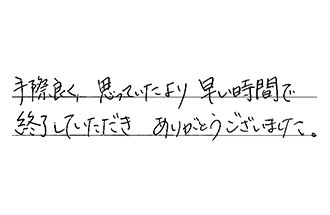 手際良く、思っていたより早い時間で
終了していただき ありがとうございました。